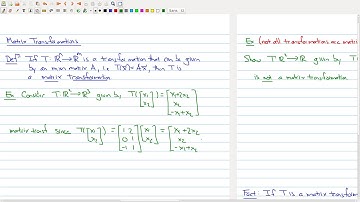 Matrix Transformations
Def: If T: ℝⁿ→ℝᵐ is a transformation that can be given
by an mxn matrix A, i.e. T(x)=Ax, then T is
a matrix transformation
Ex Consider T: ℝ²→ℝ³ given by T([x₁ x₂]) = [x₁+2x₂ x₂ -x₁+x₂]
matrix transf since T([x₁ x₂]) = [1 2 0 1 -1 1][x₁ x₂] = [x₁+2x₂ x₂ -x₁+x₂]
Ex (not all transformations are matri
Show T: given by T(
is not a matrix transformation
Fact: If T is a matrix transform